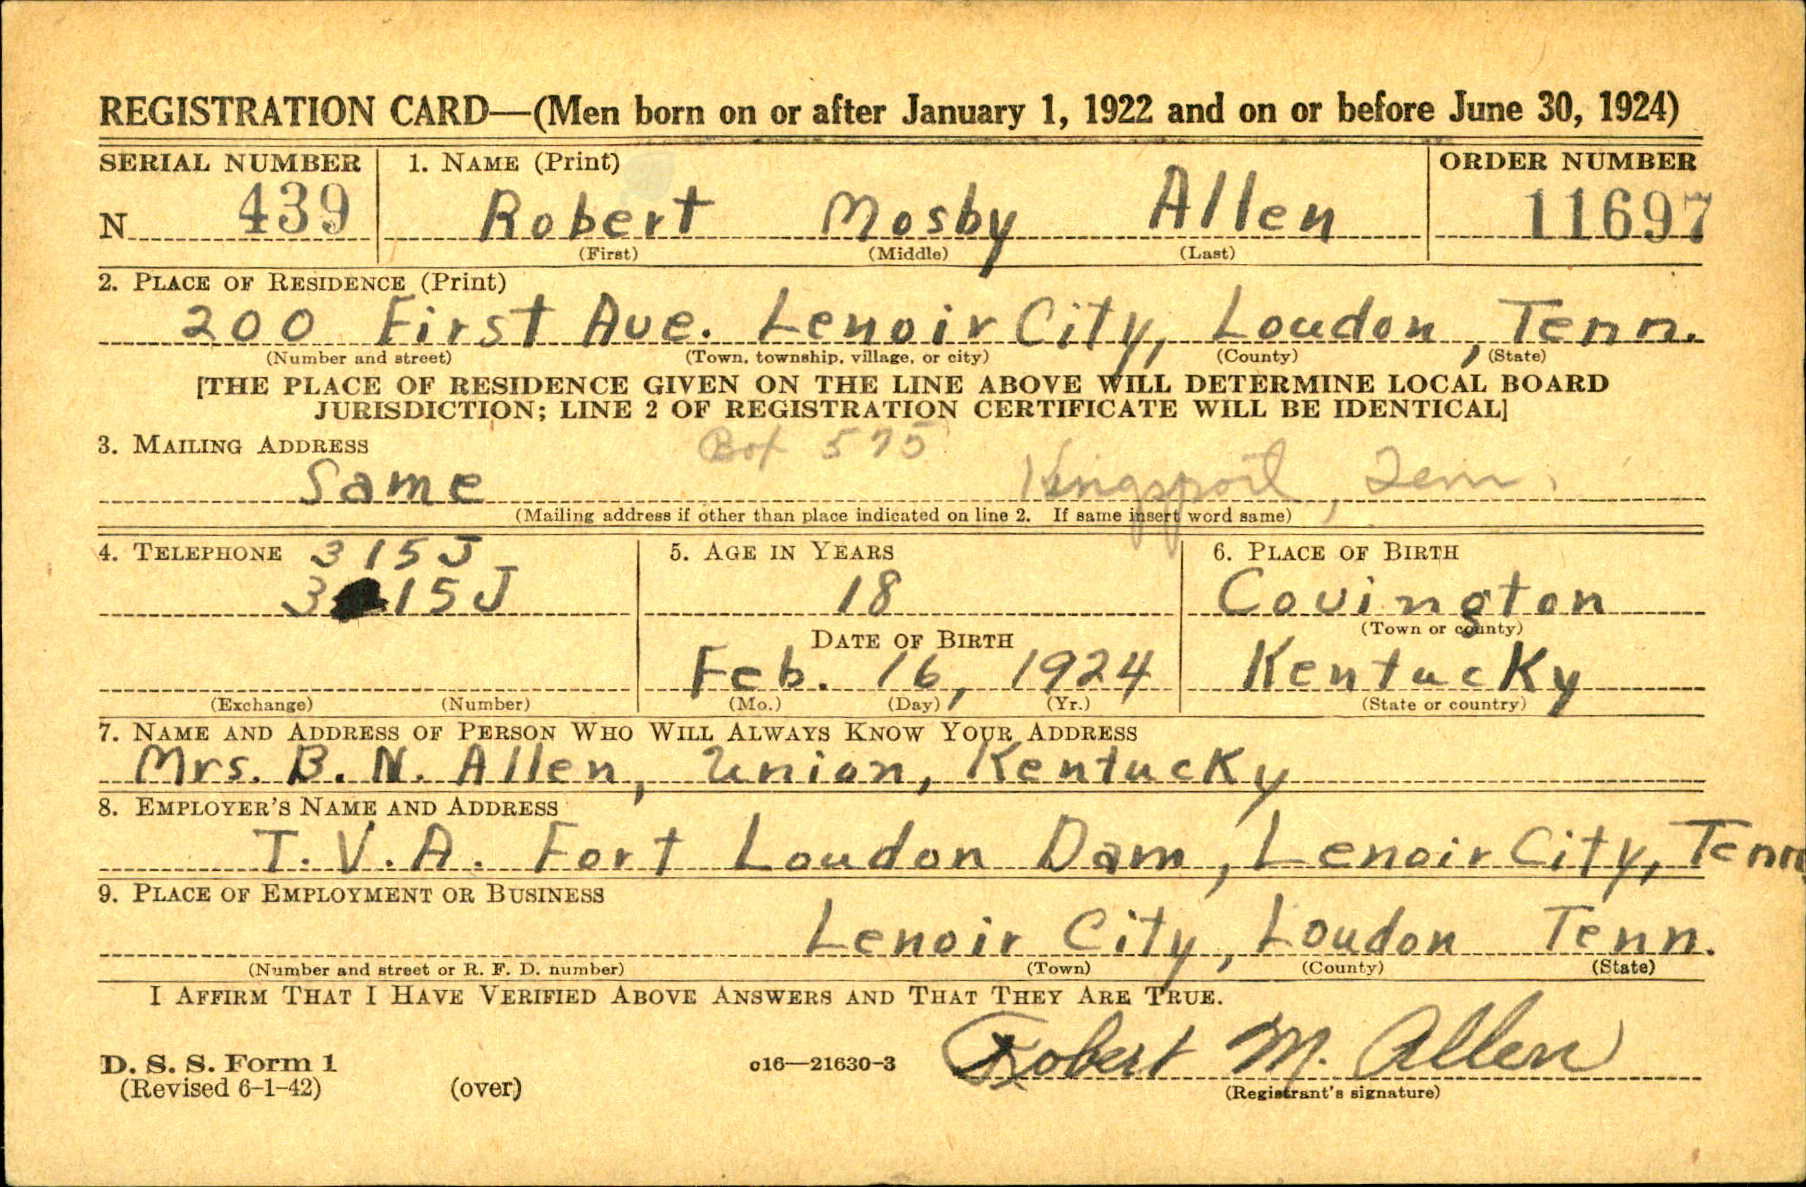 REGISTRATION CARD—(Men born on or after January 1, 1922 and on or before June 30, 1924)
SERIAL NUMBER 1. NAME (Print) ORDER NUMBER
N 439 Robert Mosby Allen 11697
(First) (Middle) (Last)
2. PLACE OF RESIDENCE (Print)
200 First Ave. Lenoir City, Loudon, Tenn.
(Number and street) (Town, township, village, or city) (County) (State)
[THE PLACE OF RESIDENCE GIVEN ON THE LINE ABOVE WILL DETERMINE LOCAL BOARD
JURISDICTION; LINE 2 OF REGISTRATION CERTIFICATE WILL BE IDENTICAL]
3. MAILING ADDRESS Box 575
Same Kingsport, Tenn.
(Mailing address if other than place indicated on line 2. If same insert word same)
4. TELEPHONE 315J 5. AGE IN YEARS 6. PLACE OF BIRTH
315J 18 Covington
DATE OF BIRTH (Town or county)
Feb. 16, 1924 Kentucky
(Exchange) (Number) (Mo.) (Day) (Yr.) (State or country)
7. NAME AND ADDRESS OF PERSON WHO WILL ALWAYS KNOW YOUR ADDRESS
Mrs. B. N. Allen, Union, Kentucky
8. EMPLOYER'S NAME AND ADDRESS
T. V. A. Fort Loudon Dam, Lenoir City, Tenn
9. PLACE OF EMPLOYMENT OR BUSINESS
Lenoir City, Loudon Tenn.
(Number and street or R. F. D. number) (Town) (County) (State)
I AFFIRM THAT I HAVE VERIFIED ABOVE ANSWERS AND THAT THEY ARE TRUE.
Robert M. Allen
D. S. S. Form 1 c16—21630-3
(Revised 6-1-42) (over) (Registrant's signature)